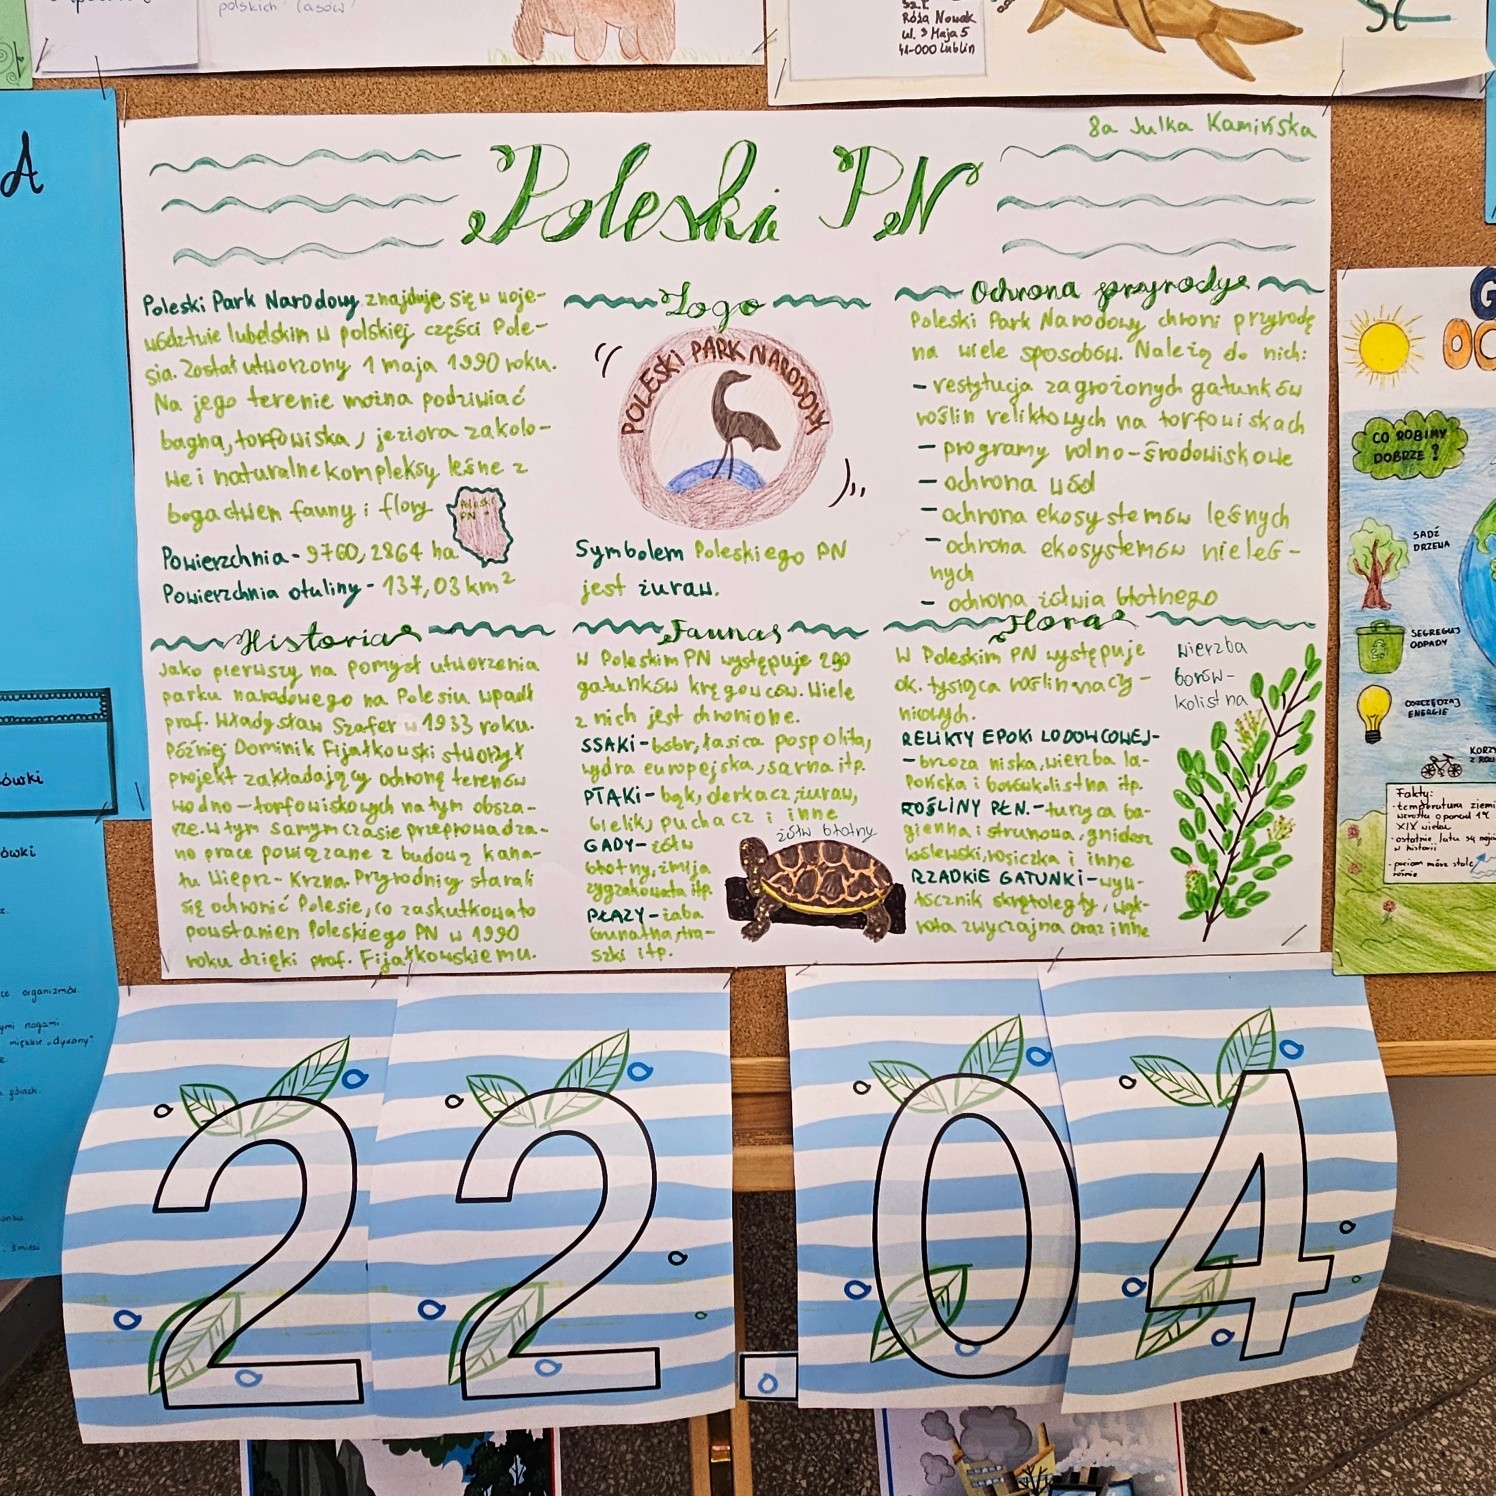 polskich lasów
Róża Nowak
ul. 3 Maja 5
41-000 Lublin
A
8a Julka Kamińska
Poleski PN
Poleski Park Narodowy znajduje się w woje-
wództwie lubelskim w polskiej części Pole-
sia. Został utworzony 1 maja 1990 roku.
Na jego terenie można podziwiać
bagna, torfowiska, jeziora zakolo-
we i naturalne kompleksy leśne z
bogactwem fauny i flory
Poleski
PN
Powierzchnia - 9760,2864 ha
Powierzchnia otuliny - 137,03 km²
Logo
POLESKI PARK NARODOWY
Symbolem Poleskiego PN
jest żuraw.
Ochrona przyrody
Poleski Park Narodowy chroni przyrodę
na wiele sposobów. Należą do nich:
- restytucja zagrożonych gatunków
roślin reliktowych na torfowiskach
- programy rolno-środowiskowe
- ochrona wód
- ochrona ekosystemów leśnych
- ochrona ekosystemów nieleś-
nych
- ochrona żółwia błotnego
Historia
Jako pierwszy na pomysł utworzenia
parku narodowego na Polesiu wpadł
prof. Władysław Szafer w 1933 roku.
Później Dominik Fijałkowski stworzył
projekt zakładający ochronę terenów
wodno-torfowiskowych na tym obsza-
rze. W tym samym czasie przeprowadza-
no prace powiązane z budową kana-
łu Wieprz-Krzna. Przyrodnicy starali
się ochronić Polesie, co zaskutkowało
powstaniem Poleskiego PN w 1990
roku dzięki prof. Fijałkowskiemu.
Fauna
W Poleskim PN występuje 290
gatunków kręgowców. Wiele
z nich jest chronione.
SSAKI - bóbr, łasica pospolita,
wydra europejska, sarna itp.
PTAKI - bąk, derkacz, żuraw,
bielik, puchacz i inne
GADY - żółw
błotny, żmija
zygzakowata itp.
PŁAZY - żaba
brunatna, tra-
szki itp.
żółw błotny
Flora
W Poleskim PN występuje
ok. tysiąca roślin naczy-
niowych.
RELIKTY EPOKI LODOWCOWEJ-
- brzoza niska, wierzba la-
pońska i borówkolistna itp.
ROŚLINY PŁN. - turzyca ba-
gienna i strunowa, gnidosz
królewski, rosiczka i inne
RZADKIE GATUNKI - wyb-
łocznik skrętoległy, wąk-
rota zwyczajna oraz inne
wierzba
borów-
kolistna
G
OC
CO ROBIMY
DOBRZE?
SADŹ
DRZEWA
SEGREGUJ
ODPADY
OSZCZĘDZAJ
ENERGIĘ
Fakty:
- temperatura ziemi
wzrosła o ponad 1°C
XIX wieku
- ostatnie lata są najci
w historii
- poziom mórz stale
rośnie
ówki
ówki
ce organizmów.
ymi nogami
miękkie "dywany"
w górach.
22.04